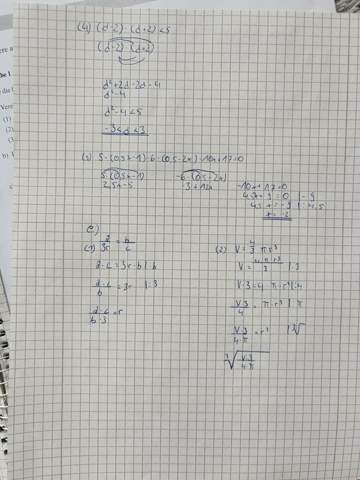 (4) (d-2) · (d+2) < 5
(d-2) · (d+2)
d²+2d-2d-4
d²-4
d²-4<5
-3<d<3
(5) 5·(0,5x-1)-6·(0,5-2x)-10x+17=0
5·(0,5x-1)
2,5x-5
-6·(0,5-2x)
-3+12x
-10x+17=0
4,5x+9=0 |-9
4,5x=-9 |:4,5
x=-2
c)
(1) a/3r = b/c
a·c=3r·b |:b
a·c/b = 3r |:3
a·c/b·3 = r
(2) V=4/3 πr³
V= 4·π·r³/3 |·3
V·3=4·π·r³ |:4
V·3/4 = π·r³ |:π
V·3/4·π = r³ |∛
∛V·3/4·π
(1)
(2)